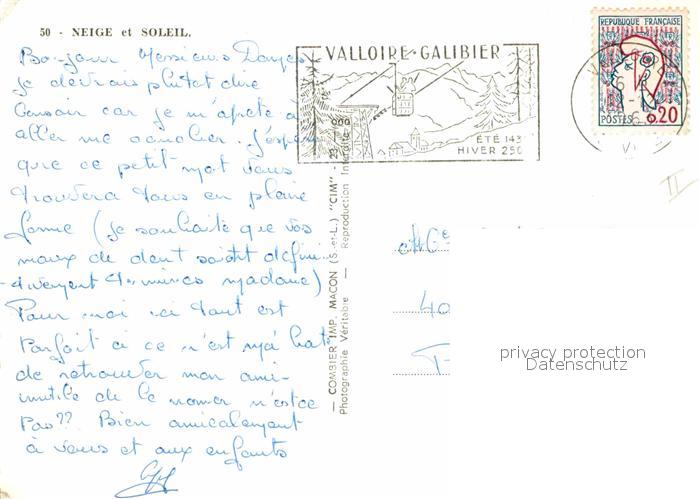 50 - NEIGE et SOLEIL.
Bonjour Messieurs Dames
je devrais plutot dire
bonsoir car je m'aprete à
aller me coucher. J'espère
que ce petit mot vous
trouvera tous en pleine
forme (je souhaite que vos
maux de dent soient défini-
tivement terminés madame)
Pour moi ici tout est
parfait si ce n'est ma hate
de retrouver mon ami-
inutile de le nommer n'est ce
pas?? Bien amicalement
à vous et aux enfants
VALLOIRE-GALIBIER
ÉTÉ 143
HIVER 250
REPUBLIQUE FRANÇAISE
POSTES 0,20
— COMBIER IMP. MACON (S.-et-L.) "CIM" -
Photographie Véritable — Reproduction Interdite
40
II
privacy protection
Datenschutz